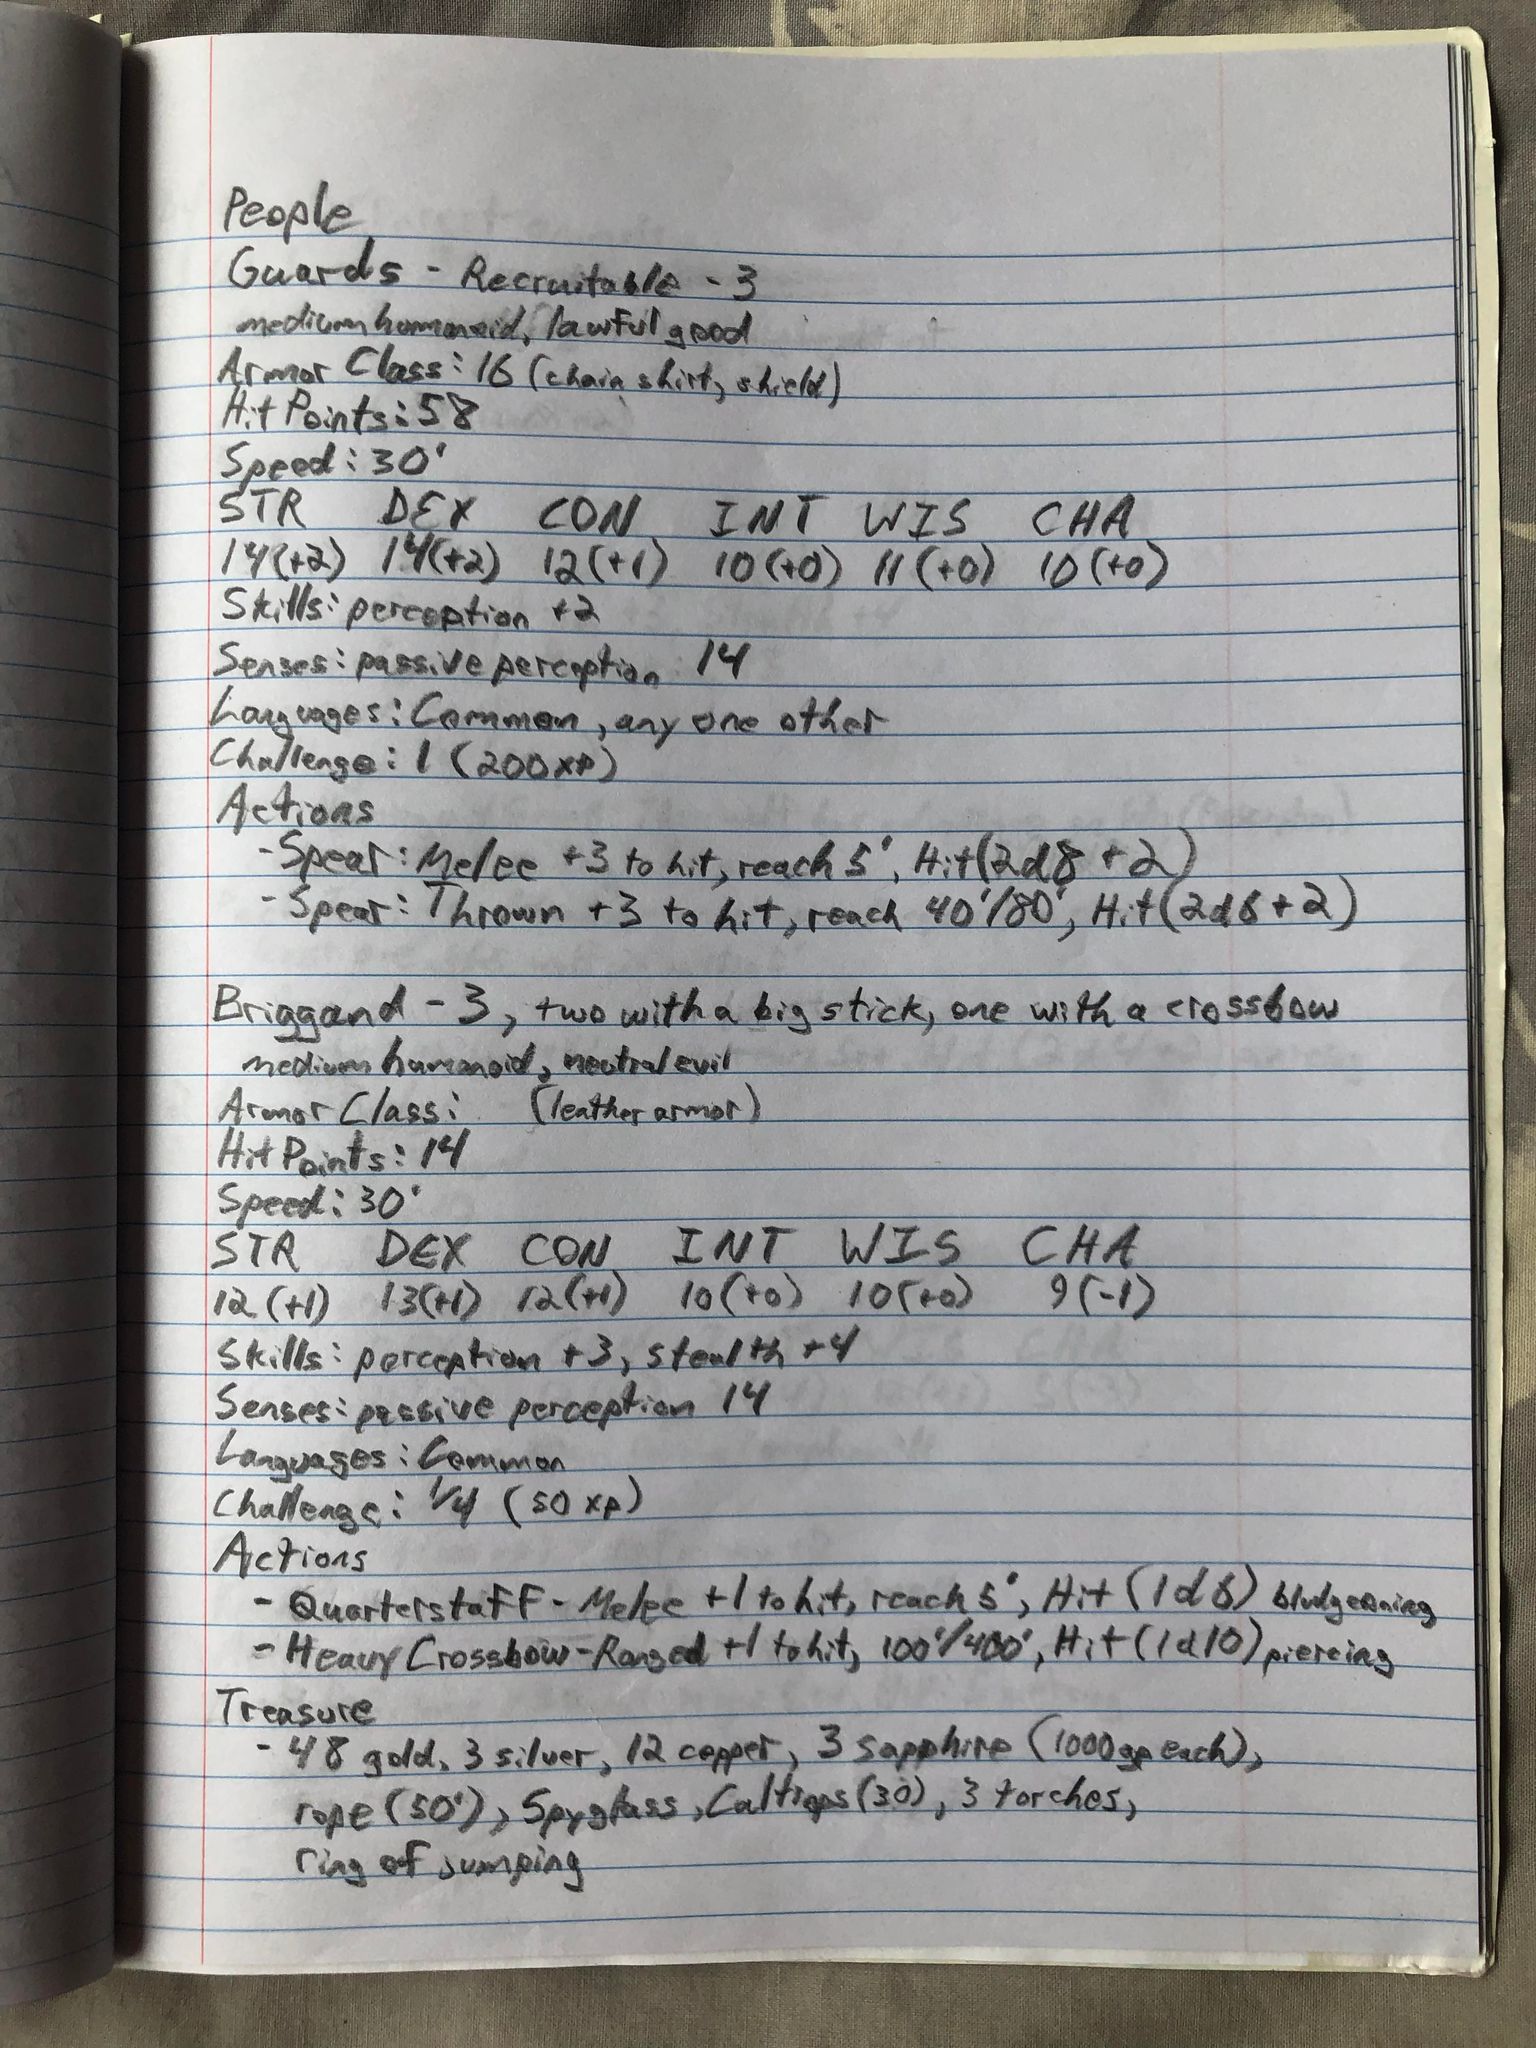 People
Guards - Recruitable - 3
medium humanoid, lawful good
Armor Class: 16 (chain shirt, shield)
Hit Points: 58
Speed: 30'
STR DEX CON INT WIS CHA
14(+2) 14(+2) 12(+1) 10(+0) 11(+0) 10(+0)
Skills: perception +2
Senses: passive perception 14
Languages: Common, any one other
Challenge: 1 (200xp)
Actions
- Spear: Melee +3 to hit, reach 5', Hit(2d8+2)
- Spear: Thrown +3 to hit, reach 40'/80', Hit(2d6+2)
Briggand - 3, two with a big stick, one with a crossbow
medium humanoid, neutral evil
Armor Class: (leather armor)
Hit Points: 14
Speed: 30'
STR DEX CON INT WIS CHA
12(+1) 13(+1) 12(+1) 10(+0) 10(+0) 9(-1)
Skills: perception +3, stealth +4
Senses: passive perception 14
Languages: Common
Challenge: 1/4 (50 xp)
Actions
- Quarterstaff - Melee +1 to hit, reach 5', Hit (1d6) bludgeoning
- Heavy Crossbow - Ranged +1 to hit, 100'/400', Hit (1d10) piercing
Treasure
- 48 gold, 3 silver, 12 copper, 3 sapphire (1000gp each),
rope (50'), Spyglass, Caltrops (30), 3 torches,
ring of jumping